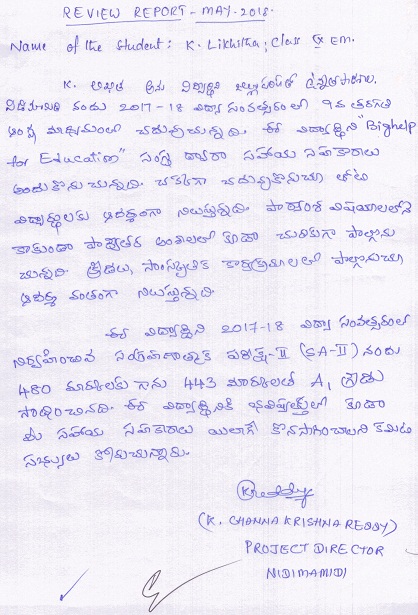 REVIEW REPORT - MAY - 2018.
Name of the Student: K. Likhitha, Class IX EM.
K. లిఖిత అను విద్యార్థిని జిల్లాపరిషత్ ఉన్నతపాఠశాల,
నిడిమామిడి నందు 2017-18 విద్యా సంవత్సరంలో 9వ తరగతి
ఆంగ్ల మాధ్యమంలో చదువుచున్నది. ఈ విద్యార్థిని "Bighelp
for Education" సంస్థ ద్వారా సహాయ సహకారాలు
అందుకొనుచున్నది. చక్కగా చదువుకొనుచూ తోటి
విద్యార్థులకు ఆదర్శంగా నిలుస్తున్నది. పాఠ్యాంశ విషయాలలోనే
కాకుండా పాఠ్యేతర అంశాలలో కూడా చురుకుగా పాల్గొను
చున్నది. క్రీడలు, సాంస్కృతిక కార్యక్రమాలలో పాల్గొనుచూ
ఆదర్శ వంతంగా నిలుస్తున్నది.
ఈ విద్యార్థిని 2017-18 విద్యా సంవత్సరంలో
నిర్వహించిన సంగ్రహణాత్మక పరీక్ష-II (SA-II) నందు
480 మార్కులకు గాను 443 మార్కులతో A1 గ్రేడు
సాధించినది. ఈ విద్యార్థినికి భవిష్యత్తులో కూడా
మీ సహాయ సహకారాలు యిలాగే కొనసాగించాలని కమిటి
సభ్యులు కోరుచున్నారు.
(K. CHONNA KRISHNA REDDY)
PROJECT DIRECTOR
NIDIMAMIDI